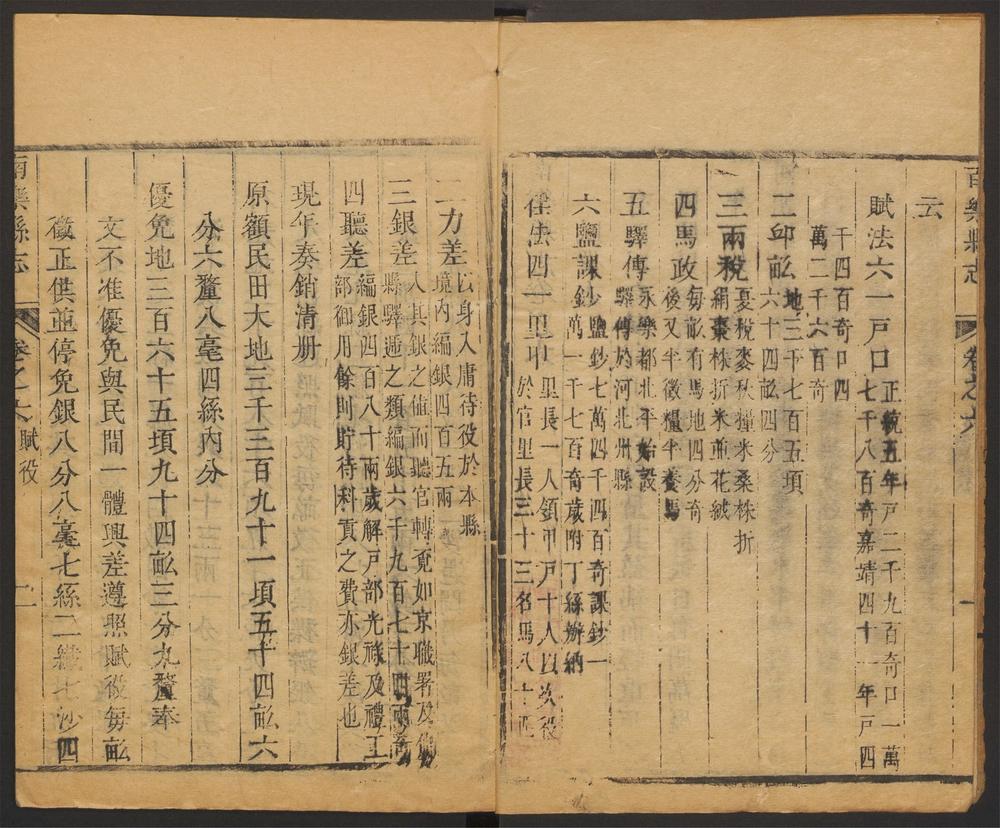 南樂縣志
卷之六
一
云
賦法六一戶口
正統五年戶二千九百奇口一萬
七千八百奇嘉靖四十一年戶四
千四百奇口四
萬二千六百奇
二邱畝
地三千七百五項
六十四畝四分
三兩稅
夏稅麥秋糧米桑株折
絹棗株折米並花絨
四馬政
每畝有馬地四分奇
後又半徵糧半養馬
五驛傳
永樂都北平始設
驛傳於河北州縣
六鹽課鈔
鹽鈔七萬四千四百奇課鈔一
萬一千七百奇歲附丁絲辦納
徭法四一里甲
里長一人領甲戶十人以次役
於官里長三十三名馬八十匹
二力差
以身入庸待役於本縣
境內編銀四百五兩
三銀差
入其銀之值而聽官轉覓如京職署及鄰
縣驛遞之類編銀六千九百七十四兩奇
四聽差
編銀四百八十兩歲解戶部光祿及禮工
部御用餘則貯待科貢之費亦銀差也
現年奏銷清册
原額民田大地三千三百九十一項五十四畝六
分六釐八毫四絲內分
優免地三百六十五項九十四畝三分九釐奉
文不准優免與民間一體興差遵照賦役每畝
徵正供並停免銀八分八毫七絲二纖七沙四
南樂縣志
卷之六
賦役
二